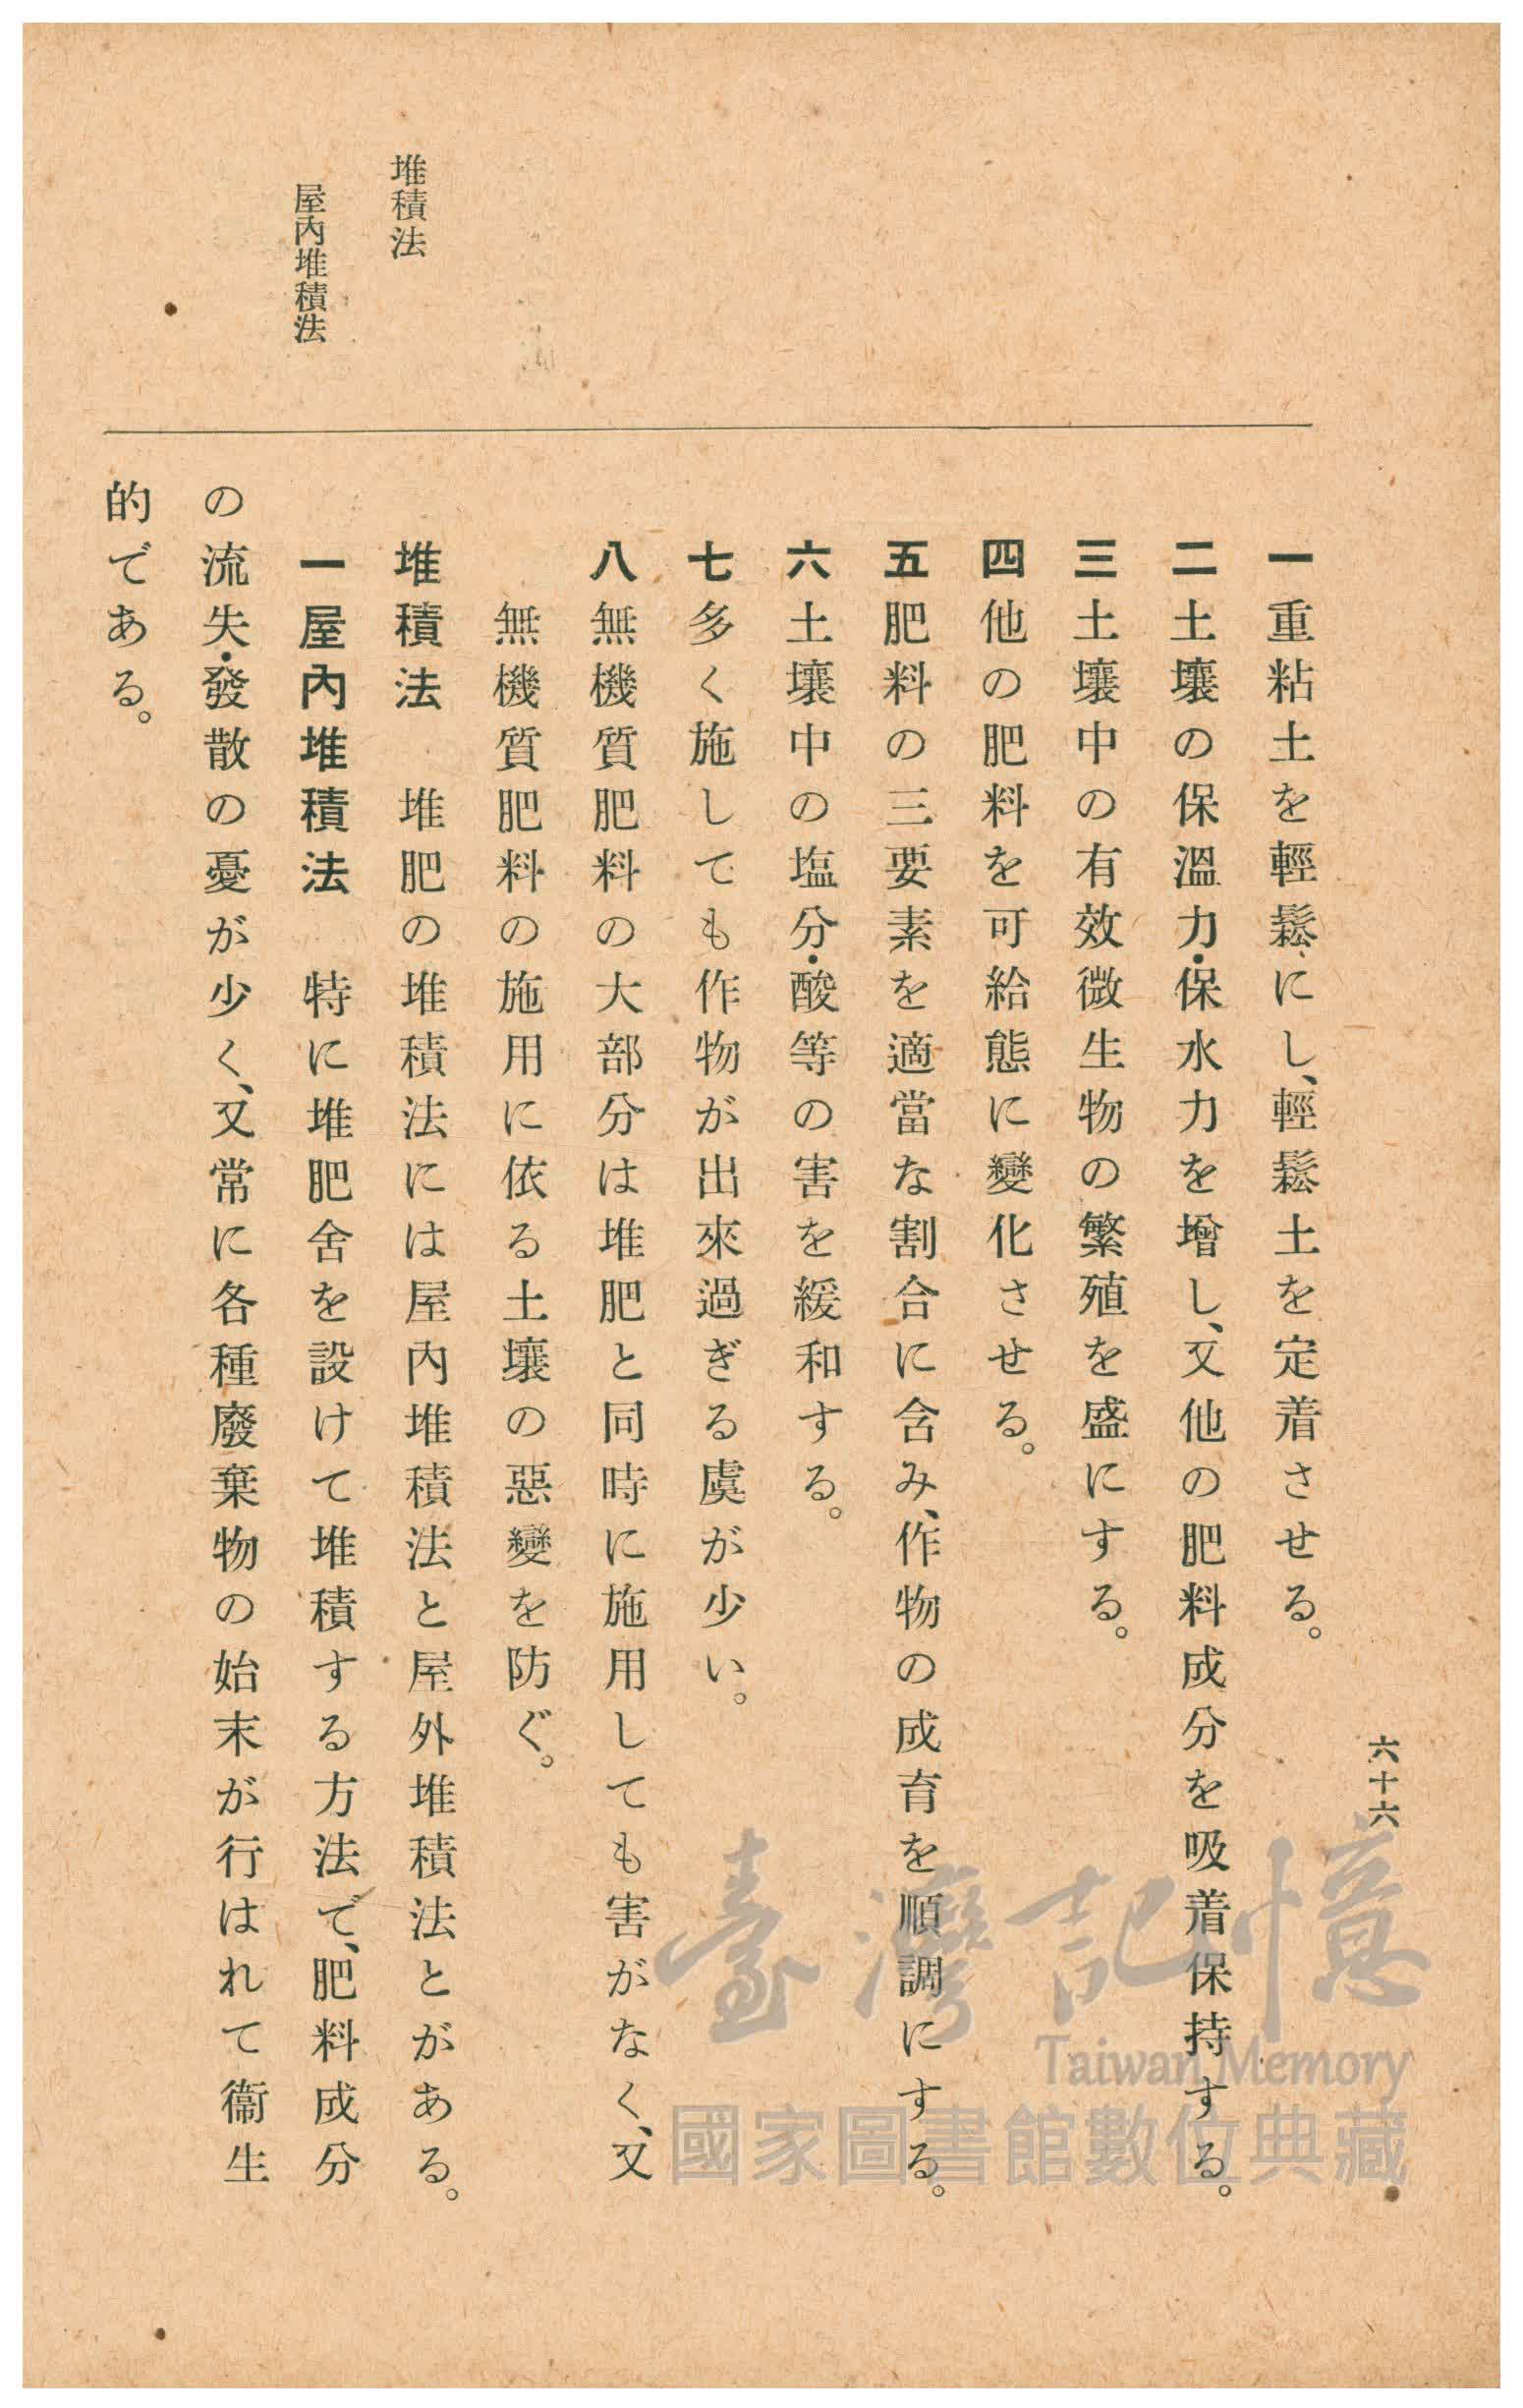 六十六
一 重粘土を輕鬆にし、輕鬆土を定着させる。
二 土壤の保溫力・保水力を增し、又他の肥料成分を吸着保持する。
三 土壤中の有效微生物の繁殖を盛にする。
四 他の肥料を可給態に變化させる。
五 肥料の三要素を適當な割合に含み、作物の成育を順調にする。
六 土壤中の塩分・酸等の害を緩和する。
七 多く施しても作物が出來過ぎる虞が少い。
八 無機質肥料の大部分は堆肥と同時に施用しても害がなく、又
無機質肥料の施用に依る土壤の惡變を防ぐ。
堆積法
堆積法 堆肥の堆積法には屋內堆積法と屋外堆積法とがある。
屋內堆積法
一 屋內堆積法 特に堆肥舍を設けて堆積する方法で、肥料成分
の流失・發散の憂が少く、又常に各種廢棄物の始末が行はれて衞生
的である。
臺灣記憶
Taiwan Memory
國家圖書館數位典藏